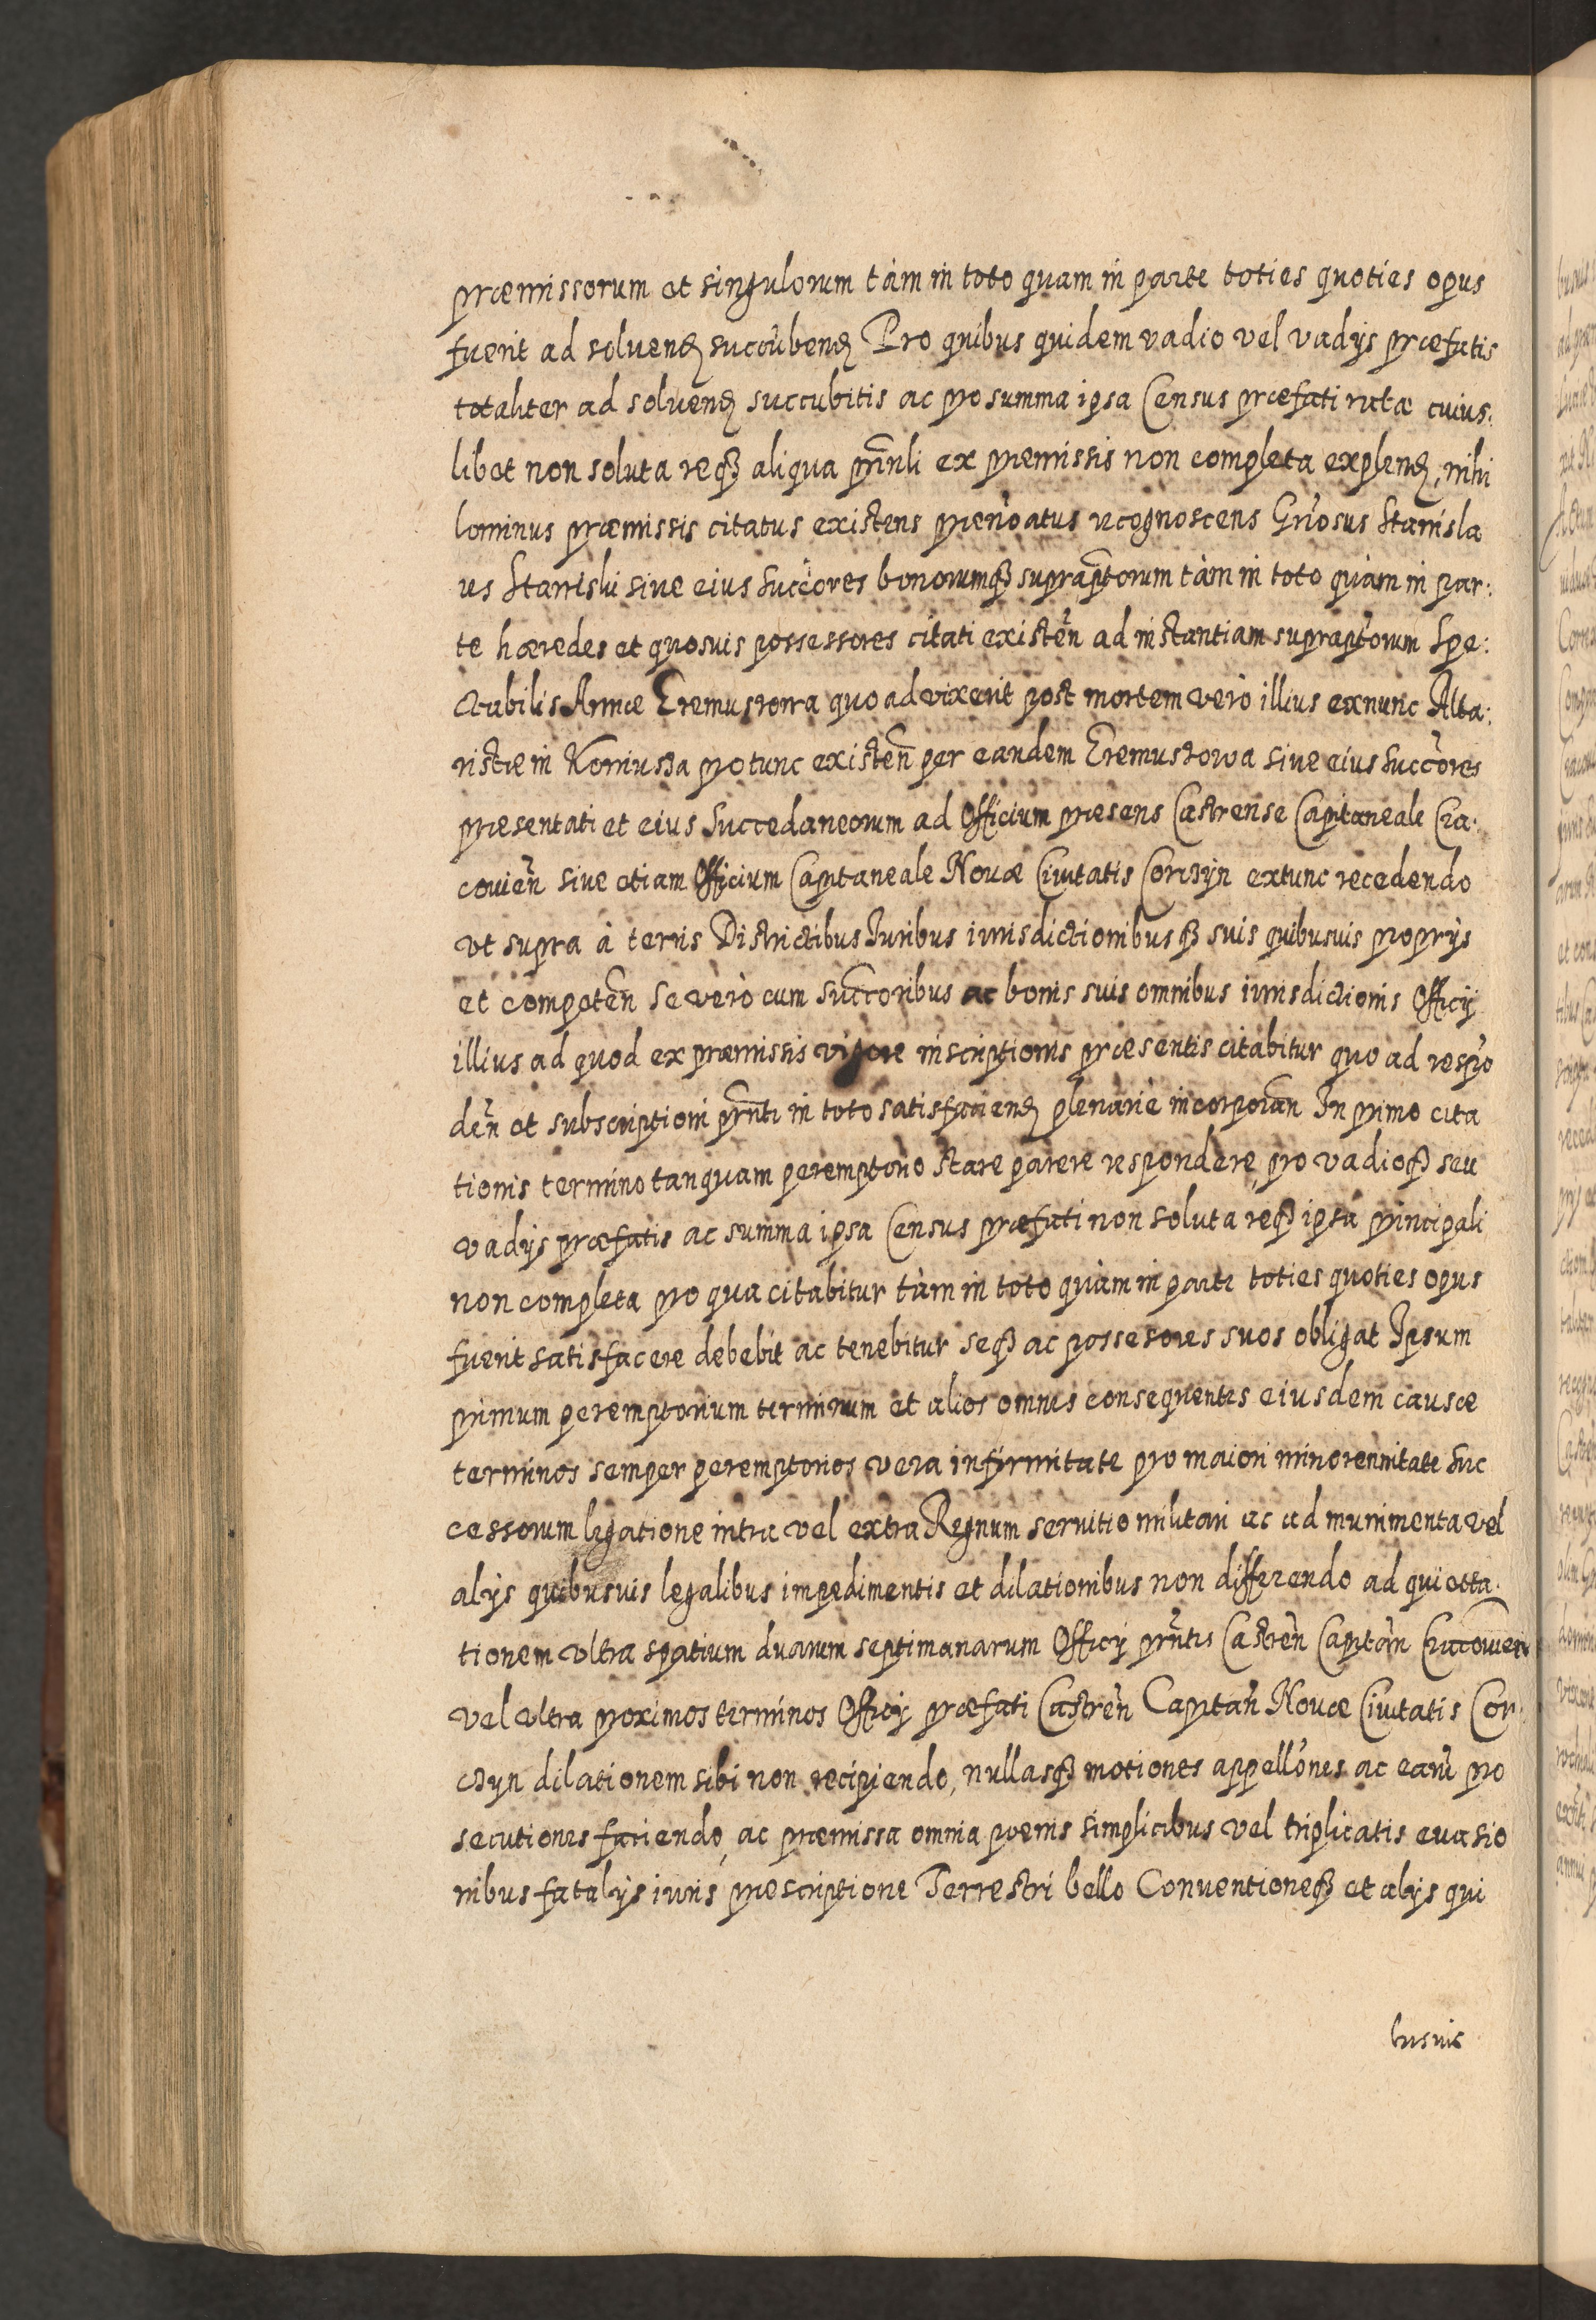 præmissorum et singulorum tàm in toto quam in parte toties quoties opus
fuerit ad soluend succubend Pro quibus quidem vadio vel vadÿs præfatis
totaliter ad soluend succubitis ac pro summa ipsa Census præfati rata cuius:
libet non soluta reqȝ aliqua prinnli ex præmissis non completa explend, nihi
lominus præmissis citatus existens prenoatus recognoscens Grosus Stanisla
us Stanislii siue eius Succores bonorumqȝ supraptorum tàm in toto quàm in par:
te hæredes et quosuis possessores citati existen ad instantiam supraptorum Spe:
ctabilis Annæ quoad vixerit post mortem verò illius exnunc Alta:
ristæ in protunc existen per eandem siue eius Succores
præsentati et eius Succedaneorum ad Officium præsens Castrense Capitaneale Cra:
couien siue etiam Officium Capitaneale Nouæ Ciuitatis Corczÿn extunc recedendo
vt supra à terris Districtibus Iuribus iurisdictionibusqȝ suis quibusuis proprÿs
et competen se verò cum Succoribus ac bonis suis omnibus iurisdictionis Officÿ
illius ad quod ex præmissis vigore inscriptionis præsentis citabitur quo ad respo
den et subscriptioni prnti in toto satisfaciend plenariè incorporan In primo cita
tionis termino tanquam peremptorio stare parere respondere, pro vadioqȝ seu
vadÿs præfatis ac summa ipsa Census præfati non soluta reqȝ ipsa principali
non completa pro qua citabitur tàm in toto quàm in parte toties quoties opus
fuerit satisfacere debebit ac tenebitur seqȝ ac possesores suos obligat Ipsum
primum peremptorium terminum et alios omnes consequentes eiusdem causæ
terminos semper peremptorios vera infirmitate pro maiori minorennitate Suc
cessorum legatione intra vel extra Regnum seruitio militari ac ad munimenta vel
alÿs quibusuis legalibus impedimentis et dilationibus non differendo ad quietta:
tionem vltra spatium duarum septimanarum Officÿ prntis Castren Capitan Cracouien
vel vltra proximos terminos Officÿ præfati Castren Capitan Nouæ Ciuitatis Cor:
czyn dilationem sibi non recipiendo, nullasqȝ motiones appellones ac earu pro
secutiones faciendo, ac præmissa omnia poenis simplicibus vel triplicatis euasio
nibus fatalÿs iuris præscriptione Terrestri bello Conuentioneqȝ et alÿs qui
busuis